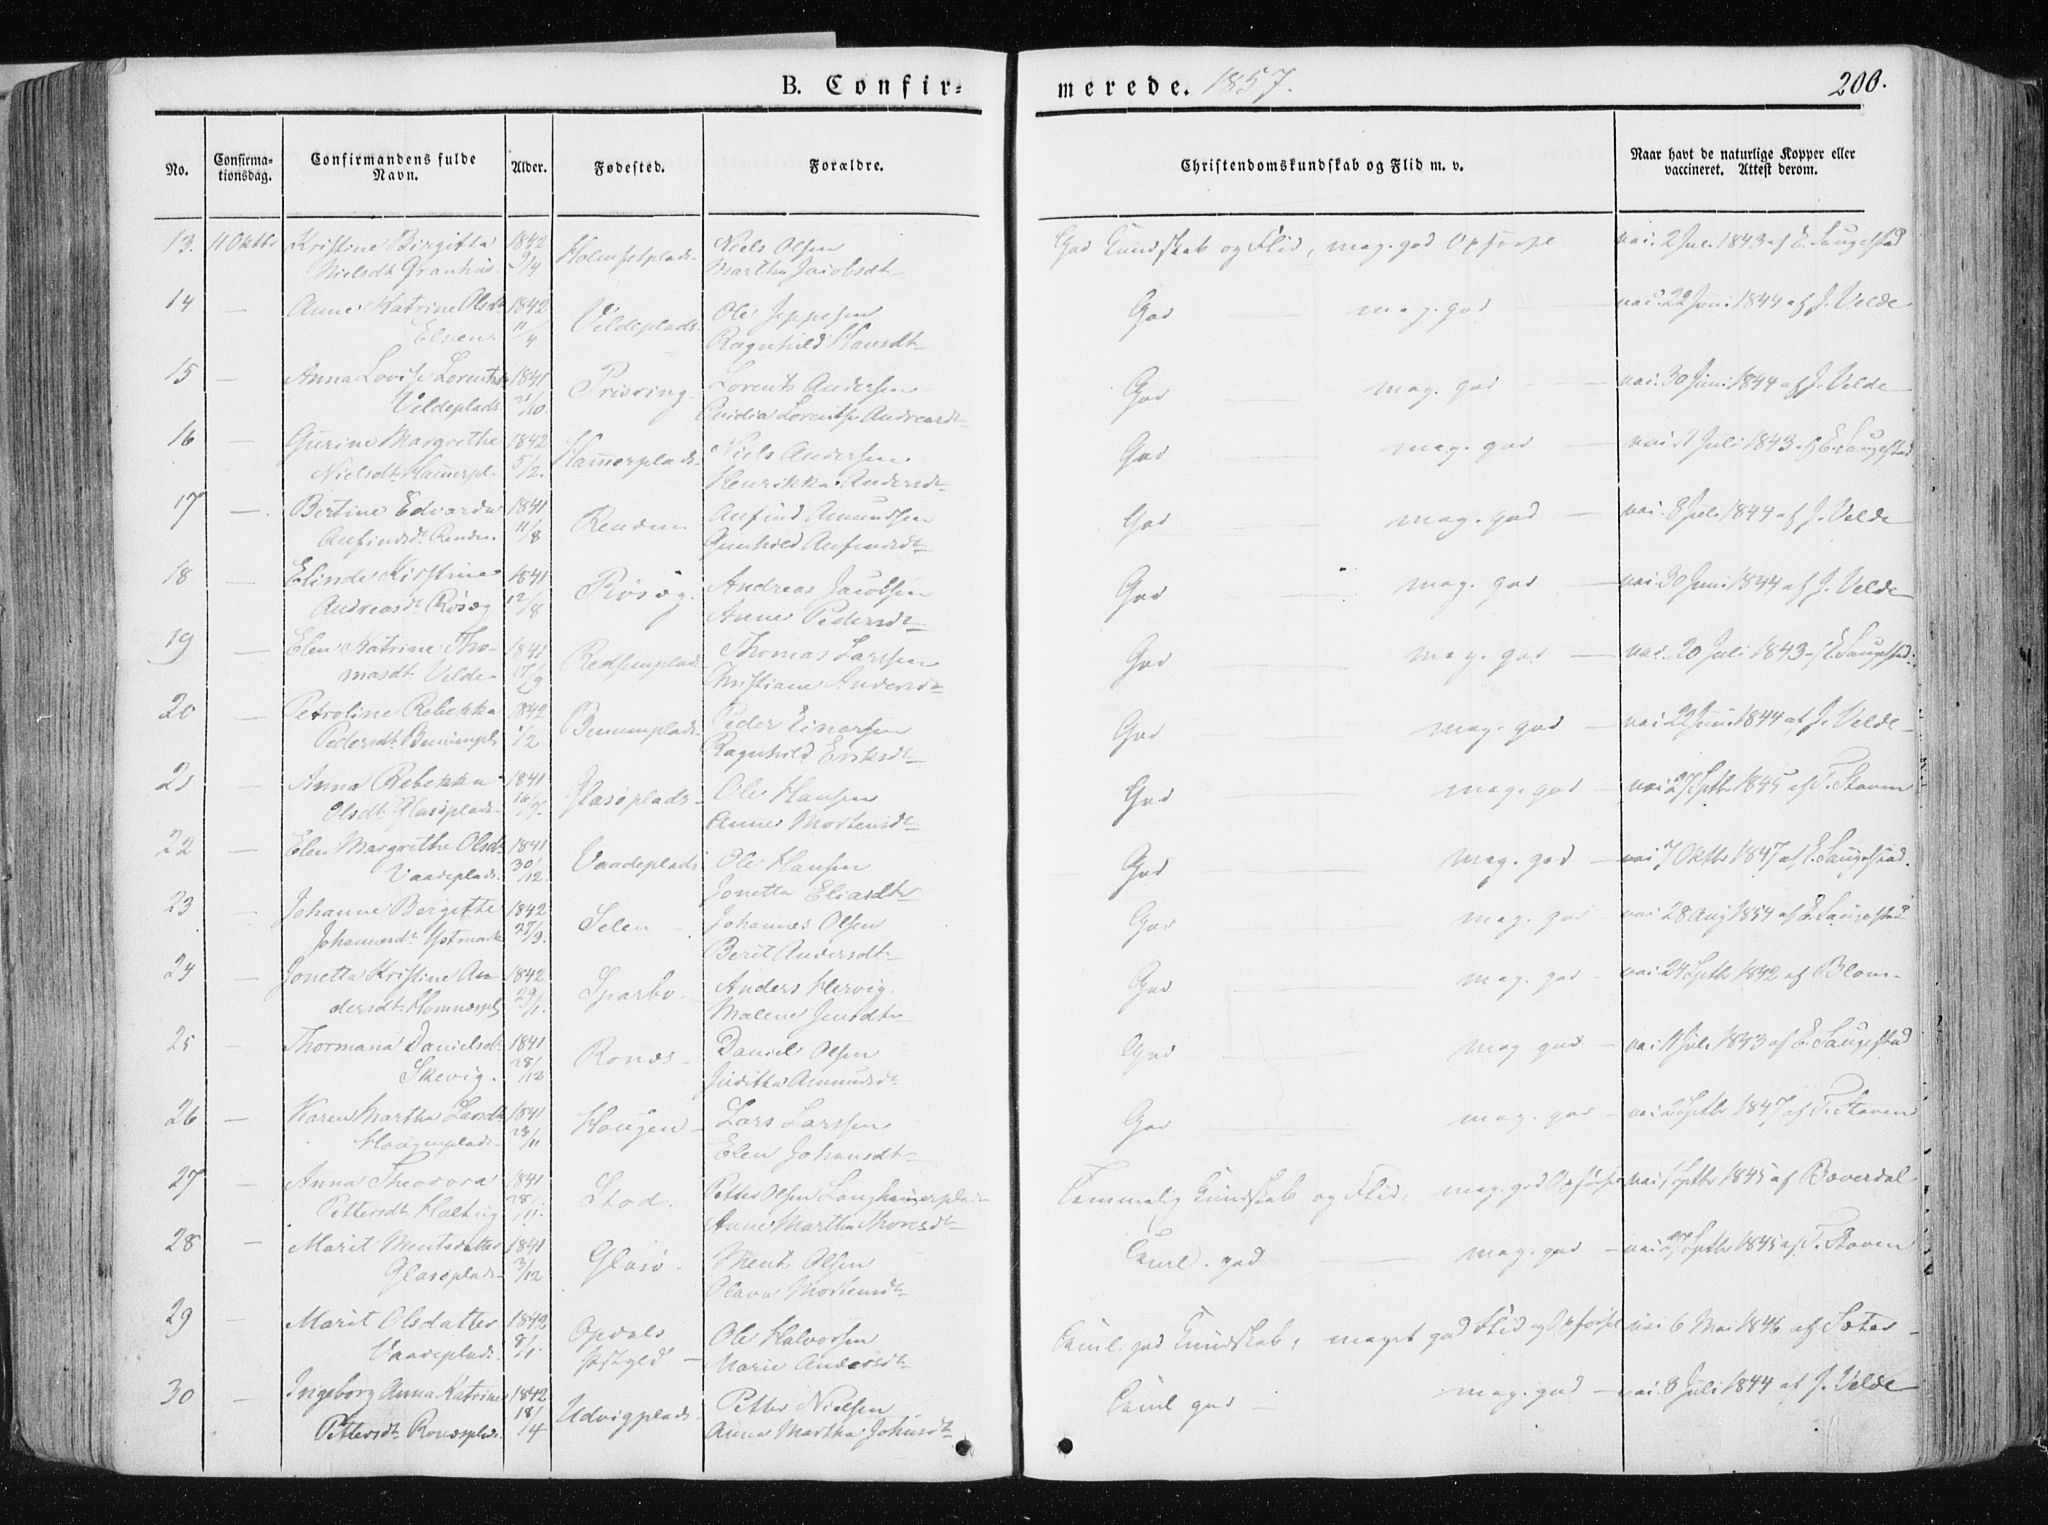 B. Confir-
merede. 1857.
200.
No.
Confirma-
tionsdag.
Confirmandens fulde
Navn.
Alder.
Fødested.
Forældre.
Christendomskundskab og Flid m. v.
Naar havt de naturlige Kopper eller
vaccineret. Attest derom.
13. 11 Oktbr Kristine Birgitta 1842 Holmsetplads Niels Olsen God Kundskab og Flid, meg. god Opførsel vac. 2 Juli 1843 af E. Saugestad
Nielsdt Granhus 9/4 Martha Jacobsdt
14 — Anne Katrine Olsdt 1842 Veldeplads Ole Jeppesen God — meg. god — vac. 22 Juni 1844 af J. Velde
Elnen 11/4 Ragnhild Hansdt
15 — Anna Lovise Lorentsdt 1841 Lorents Andersen God — meg. god — vac. 30 Juni 1844 af J. Velde
Veldeplads 21/10 Lorentse Andreasdt
16 — Gurine Margrethe 1842 Hammerplads Niels Andersen God — meg. god — vac. 11 Juli 1843 af E. Saugestad
Nielsdt Hammerpl. 5/2. Henrikka Andersdt
17 — Bertine Edvarda 1841 Renden Anfind Amundsen God — meg. god — vac. 8 Juli 1844 af J. Velde
Anfindsdt Renden 11/8 Gunhild Anfindsdt
18 — Elinde Kirstine 1841 Røsøg Andreas Jacobsen God — meg. god — vac. 30 Juni 1844 af J. Velde
Andreasdt Røsøg 12/8 Anne Pedersdt
19 — Elen Katrine Tho- 1841 Redsemplads Thomas Larssen God — meg. god — vac. 20 Juli 1843 af E. Saugestad
masdt Velde 17/9 Christiane Andersdt
20 — Petroline Rebekka 1842 Binnemplads Peder Einersen God — meg. god — vac. 22 Juni 1844 af J. Velde
Pedersdt 1/2 Ragnhild Eriksdt
21 — Anna Rebekka 1841 Glasøplads Ole Hansen God — meg. god vac. 27 Septbr 1845 af T. Staven
Olsdt Glasøplads Anne Mortensdt
22 — Elen Margrethe Olsdt 1841 Vaadeplads Ole Hansen God meg. god — vac. 7 Oktbr 1847 af E. Saugestad.
Vaadeplads 30/12 Jonetta Eliasdt
23 Johanne Bergitte 1842 Selen Johannes Olsen God meg. god vac. 28 Aug 1854 af E. Saugestad
Johannesdt Ystmark 27/3. Berit Andersdt
24 — Jonetta Kristine An- 1842 Sparbo Anders Hervig God meg. god vac. 24 Septbr 1842 af Blom
dersdt 29/1. Malene Jensdt
25 — Thormana Danielsdt 1841 Ronæs Daniel Olsen God meg. god — vac. 11 Juli 1843 af E. Saugestad
Skevig. 28/12 Judithe Amundsdt
26 — Karen Martha Larsdt 1841 Haugen Lars Larssen God meg. god — vac. 2 Septbr 1847 af T. Staven
Haugenplads 23/11 Elen Johansdt
27 — Anna Theodora 1841 Stod. Petter Olsen Langhammerplads Temmelig Kundskab og Flid, meg. god Opførsel vac. Septbr 1845 af Bæverdal
Pettersdt Haltug 28/11. Anne Martha Thoresdt
28 — Marit Mentsdatter 1841 Glasø Ment Olsen Teml. god — meg. god — vac. Septbr 1845 af T. Staven
Glasøplads 3/12 Olava Mortensdt
29 — Marit Olsdatter 1842 Opdals Ole Halvorsen Teml. god Kundskab, meget god Flid og Opførsel vac. 6 Mai 1846 af Sæter
Vaadeplads 8/1. Præstgjeld Marie Andersdt
30 — Ingeborg Anna Katrine 1842 Udvigplads Petter Nielsen Teml god — meg. god — vac. 8 Juli 1844 af J. Velde
Pettersdt Ronæsplads. 18/4 Anna Martha Johnsdt